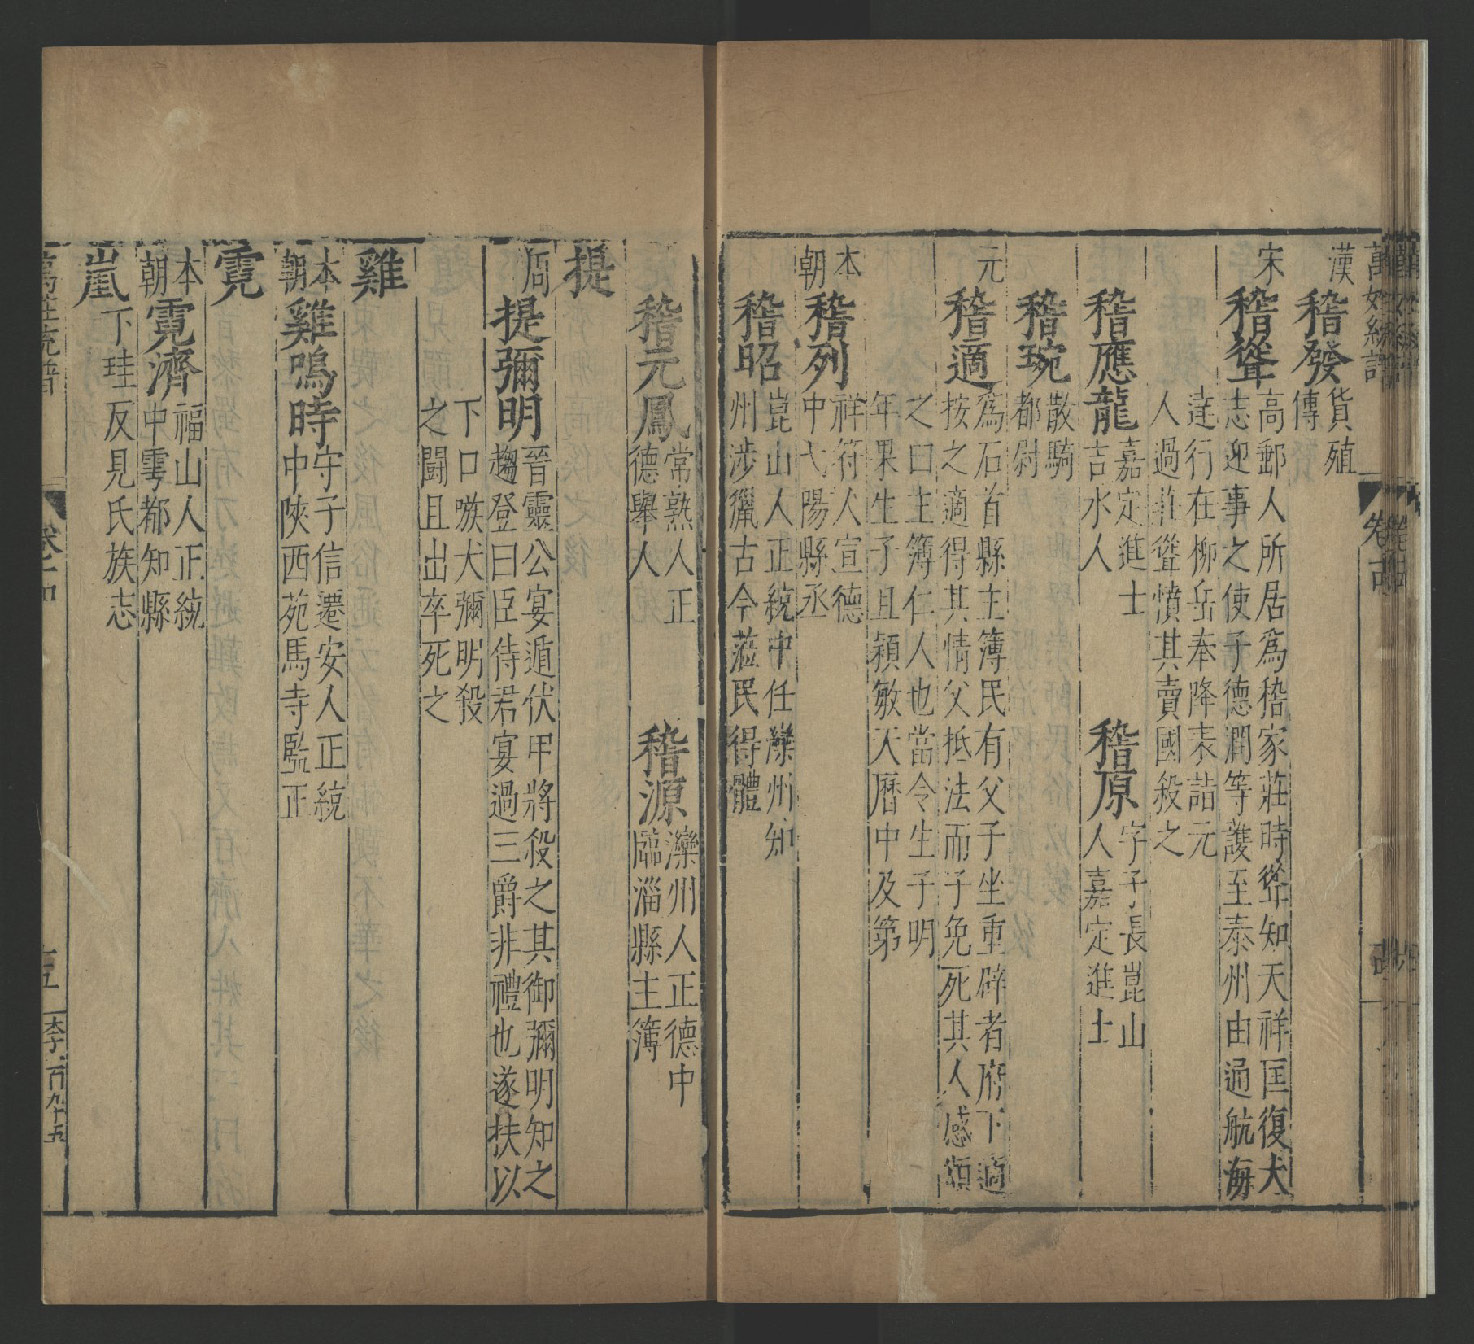 漢
稽發
貨殖
傳
宋
稽聳
高郵人所居爲稽家莊時聳知天祥匡復大
志迎事之使子德潤等護至泰州由通航海
達行在柳岳奉降表詰元
人過莊聳憤其賣國殺之
稽應龍
嘉定進士
吉水人
稽原
字子長崑山
人嘉定進士
稽琬
散騎
都尉
元
稽適
爲石首縣主簿民有父子坐重辟者府下適
按之適得其情父抵法而子免死其人感頌
之曰主簿仁人也當令生子明
年果生子且穎敏天曆中及第
本
朝
稽列
祥符人宣德
中弋陽縣丞
稽昭
崑山人正統中任灤州知
州涉獵古今蒞民得體
稽元鳳
常熟人正
德舉人
稽源
灤州人正德中
臨淄縣主簿
提
周
提彌明
晉靈公宴遁伏甲將殺之其御彌明知之
趨登曰臣侍君宴過三爵非禮也遂扶以
下口嗾犬彌明殺
之鬬且出卒死之
雞
本
朝
雞鳴時
守子信遷安人正統
中陜西苑馬寺監正
霓
本
朝
霓濟
福山人正統
中雩都知縣
嵐
下珪反見氏族志
萬姓統譜
卷十四
五
李百九十五